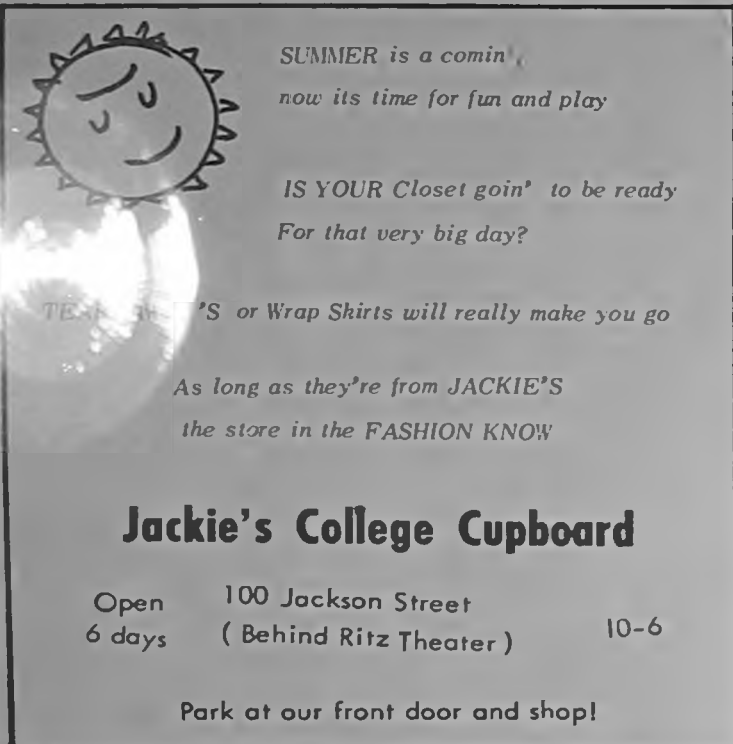 SUMMER is a comin',
now its time for fun and play
IS YOUR Closet goin' to be ready
For that very big day?
'S or Wrap Skirts will really make you go
As long as they're from JACKIE'S
the store in the FASHION KNOW
Jackie's College Cupboard
Open 100 Jackson Street
6 days ( Behind Ritz Theater ) 10-6
Park at our front door and shop!